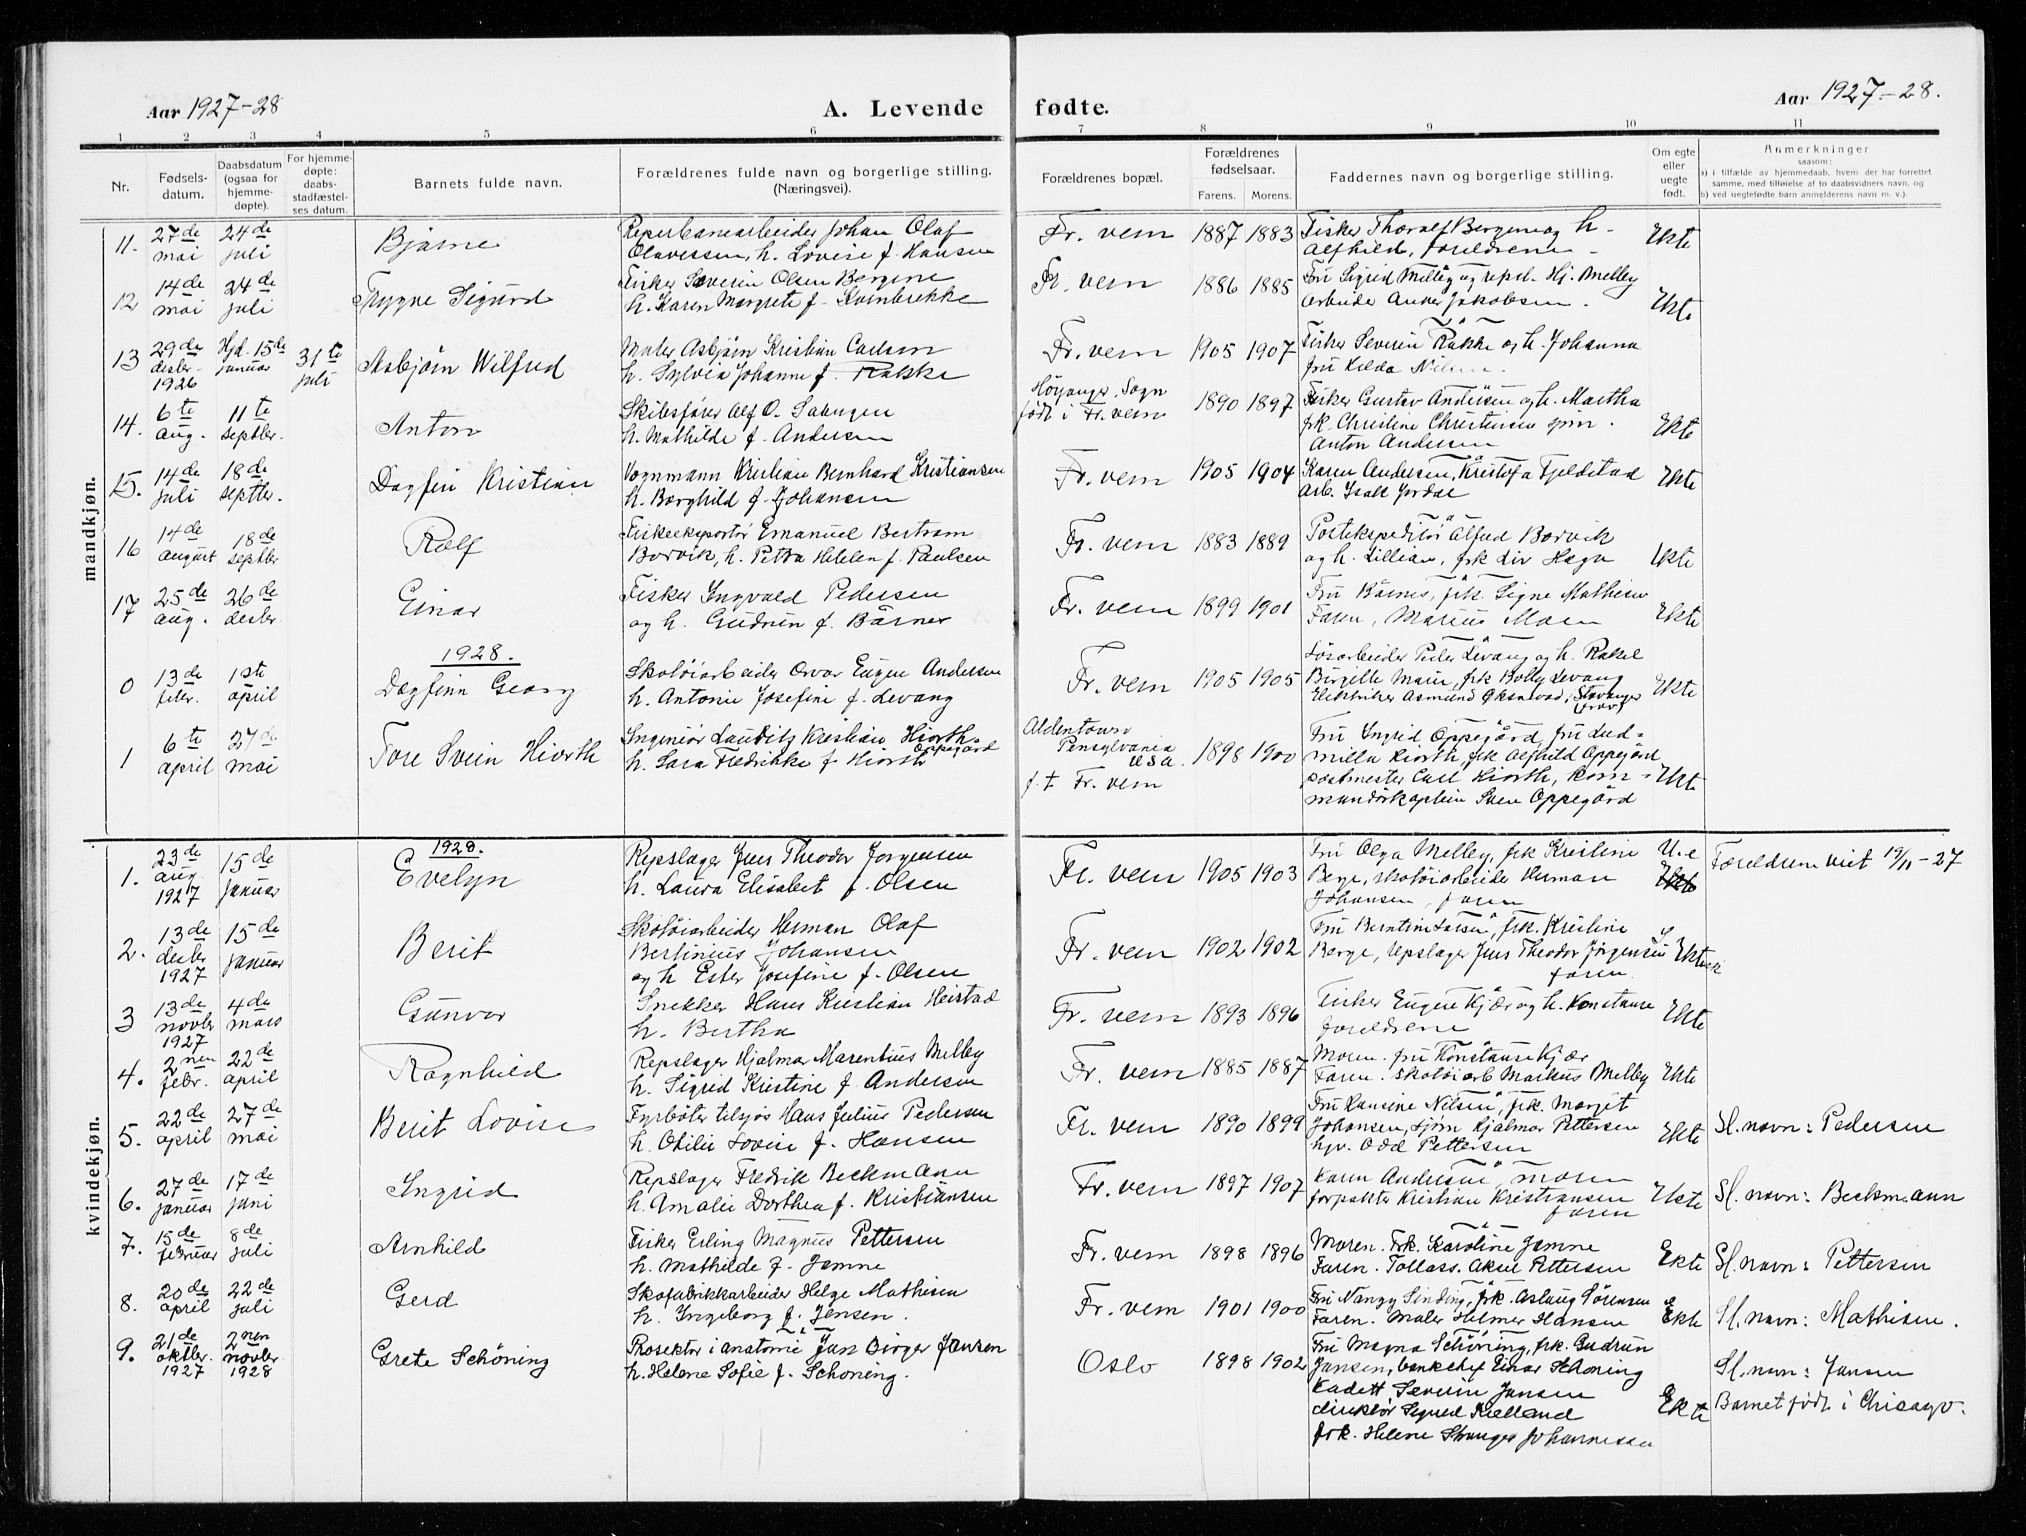 Aar 1927-28
A. Levende fødte.
Aar 1927-28.
1 2 3 4 5 6 7 8 9 10 11
Nr.
Fødsels-
datum.
Daabsdatum
(ogsaa for
hjemme-
døpte).
For hjemme-
døpte:
daabs-
stadfæstel-
ses datum.
Barnets fulde navn.
Forældrenes fulde navn og borgerlige stilling.
(Næringsvei).
Forældrenes bopæl.
Forældrenes
fødselsaar.
Farens. Morens.
Faddernes navn og borgerlige stilling.
Om egte
eller
uegte
født.
Anmerkninger
saasom:
a) i tilfælde av hjemmedaab, hvem der har forrettet
samme, med tilføielse af to daabsvidners navn, og
b) ved uegtefødte barn anmelderens navn m. v.).
mandkjøn.
11. 27de mai 24de juli
Bjarne
Reperbanearbeider Johan Olaf
Olavessen, h. Lovise f. Hansen
Fr. vern 1887 1883
Fisker Thoralf Bergene og h.
Alfhild, foreldrene
Ekte
12 14de mai 24de juli
Trygve Sigurd
Fisker Severin Olsen Bergene
h. Karen Margrete f. Kvinbrekke
Fr. vern 1886 1885
Fru Sigrid Melby og repsl. Hj. Melby
arbeider Anker Jakobsen.
Ekte
13 29de desbr. 1926 Hjd. 15de januar 31te juli
Asbjørn Wilfred
Maler Asbjørn Kristian Carlsen
h. Sylvia Johanne f. Rakke
Fr. vern 1905 1907
Fisker Severin Rakke og h. Johanna
fru Hilda Nilsen.
14. 6te aug. 11te septbr.
Anton
Skibsfører Alf O.
h. Mathilde f. Andersen
Høyanger, Sogn
født i Fr. vern 1890 1897
Fisker Gustav Andersen og h. Martha
frk. Christine Christensen
Anton Andersen
Ekte
15. 14de juli 18de septbr.
Dagfin Kristian
Vognmann Kristian Bernhard Kristiansen
h. Borghild f. Johansen
Fr. vern 1905 1904
Karen Andersen, Kristofa Fjeldstad
Arb. Isak Jordal
Ekte
16 14de august 18de septbr
Rolf
Fiskeeksportør Emanuel Bertram
Borvik, h. Petra Helene f. Paulsen
Fr. vern 1883 1889
Postekspeditør Alfred Borvik
og h. Lillian, frk Liv Hagn
Ekte
17 25de aug. 26de desbr.
Einar
Fisker Ingvald Pedersen
og h. Gudrun f. Barnes
Fr. vern 1899 1901
Fru Barnes, frk. Signe Mathisen
Faren, Marius Moen
Ekte
1928.
0 13de febr. 1ste april
Dagfinn Georg
Skotøiarbeider Orvar Eugen Andersen
h. Antonie Josefine f. Levang
Fr. vern 1905 1905
Løsarbeider Peder Levang og h. Rakel
Birgitte Marie, frk Bolly Levang
Elektriker Asmund Øksnevad, Stavanger
Ekte
1 6te april 27de mai
Tore Svein Hiorth
Ingeniør Lauritz Kristian Hiorth-
Oppegård
h. Sara Fredrikke f Hiorth
Aldentown
Pensylvania
USA.
f. t Fr. vern
1898 1900
Fru Ingrid Oppegård, fru Lud=
milla Hiorth, frk Alfhild Oppegård
postmester Carl Hiorth, kom=
mandørkaptein Sven Oppegård
Ekte
kvindekjøn.
1928.
1. 23de aug. 1927 15de januar
Evelyn
Repslager Jens Theodor Jørgensen
h. Laura Elisabet f. Olsen
Fr. vern 1905 1903
Fru Olga Melby, frk Kristine
Berge, skotøiarbeider Herman
Johansen, faren
U. e
Ekte
Foreldrene viet 19/11-27
2. 13de desbr 1927 15de januar
Berit
Skotøiarbeider Herman Olaf
Bertinius Johansen
og h Ester Josefine f. Olsen
Fr. vern 1902 1902
Fru Berntine Larsen, frk. Kristine
Berge, repslager Jens Theodor Jørgensen
faren
Ekte
3 13de novbr 1927 4de mars
Gunvor
Snekker Hans Kristian Heistad
h. Bertha
Fr. vern 1893 1896
Fisker Eugen Kjær og h. Konstanse
foreldrene
Ekte
4. 2nen febr. 22de april
Ragnhild
Repslager Hjalmar Marentius Melby
h. Sigrid Kristine f. Andersen
Fr. vern 1885 1887
Moren. fru Konstanse Kjær
Faren. skotøiarb Markus Melby
Ekte
5. 22de april 27de mai
Berit Lovise
Fyrbøter tilsjøs Hans Julius Pedersen
h. Othilie Lovise f. Hansen
Fr. vern 1890 1899
Fru Hansine Nilsen, frk. Margit
Johansen, sjøm Hjalmar Pettersen
hgr. Odd Pettersen
Ekte
Sl. navn: Pedersen
6. 27de januar 17de juni
Ingrid
Repslager Fredrik Beckmann
h. Amalie Dorthea f. Kristiansen
Fr. vern 1897 1907
Karen Andersen, moren
forpakter Kristian Kristiansen
faren
Ekte
Sl. navn: Beckmann
7. 15de februar 8de juli
Arnhild
Fisker Erling Magnus Pettersen
h. Mathilde f. Jamne
Fr. vern 1898 1896
Moren. Frk. Karoline Jamne
Faren. Tollass. Aksel Pettersen
Ekte
Sl. navn: Pettersen
8. 20de april 22de juli
Gerd
Skofabrikkarbeider Helge Mathisen
h. Ingeborg f. Jensen.
Fr. vern 1901 1900
Fru Nanzy Sinding, frk. Aslaug Sørensen
Faren. Maler Helmer Hansen
Ekte
Sl. navn: Mathisen.
9. 21de oktbr. 1927 2nen novbr. 1928
Grete Schöning
Prosektor i anatomi Jan Birger Jansen
h. Helene Sofie f. Schöning.
Oslo 1898 1902
Fru Magna Schöning, frk. Gudrun
Jansen, banksjef Einar Schöning
Kadett Severin Jansen
direktør Sigurd Kielland
frk. Helene Johannessen
Ekte
Sl. navn: Jansen
Barnet født i Chicago.